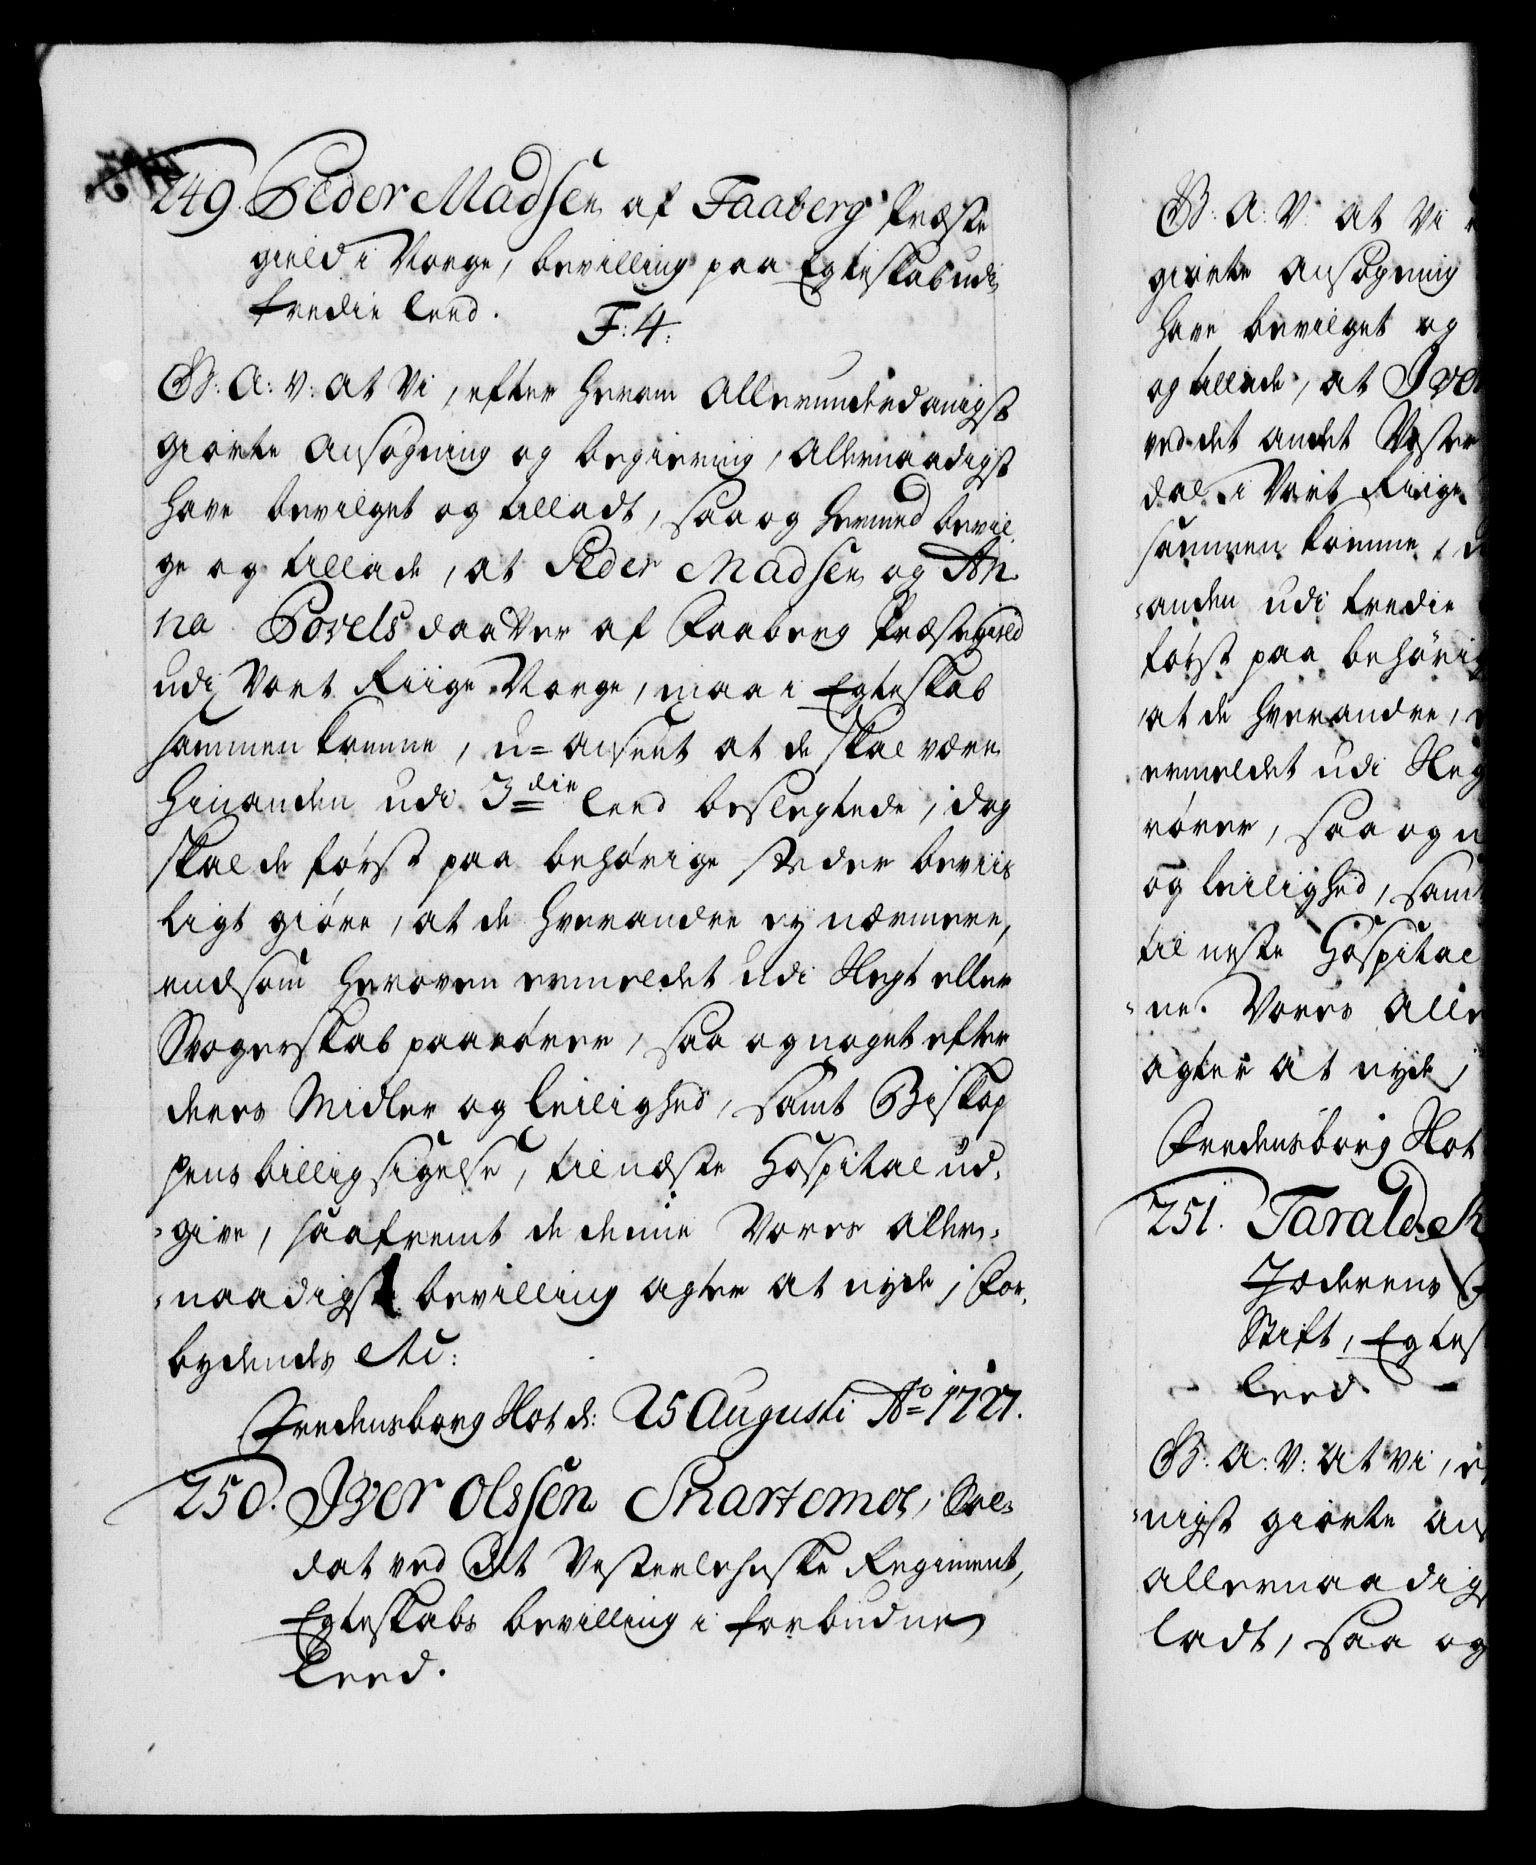 249. Peder Madsen af Faaberg Præste
gield i Norge, bevilling paa Egteskab udi
tredie leed.
F: 4:
G: A: V: at Vi, efter herom Allerunderdanigst
giorte Ansøgning og begiering, Allernaadigst
have bevilget og tilladt, saa og hermed bevil
ge og tillade, at Peder Madsen og An
na Povels daatter af Faaberg Præstegield
udi Vort Riige Norge, maa i Egteskab
sammen komme, u= anseet at de skal være
hinanden udi 3die leed beslegtede; dog
skal de først paa behørige steder beviis
ligt giøre, at de hverandre ey nærmere,
end som heroven ermeldet udi Slegt eller
Svogerskab paarører, saa og noget efter
deres Midler og leilighed, samt Biskop
pens billig sigelse, til næste Hospital ud-
give, saafremt de denne Vores aller-
naadigst bevilling agter at nyde; For-
bydendes etc:
Fredensborg Slot d: 25 Augusti Ao 1727.
250. Iver Olssen Snartemoe, Sol-
dat ved Det Vesterlehnske Regiment,
Egteskabs bevilling i forbudne
Leed.
G: A: V: at Vi
giorte Ansøgning
have bevilget og
og tillade, at Iver
ved det andet Vester
dal i Vort Riige
sammen komme, 
anden udi tredie
først paa behørig
at de hverandre,
ermeldet udi Sleg
rører, saa og n
og leilighed, samt
til neste Hospital
ne. Vores Alle
agter at nyde;
Fredensborg Slot
251. Tarald
Jæderens
Stift, Egtes
leed.
G: A: V: at vi, e
nigst giorte ans
allernaadigs
ladt, saa og